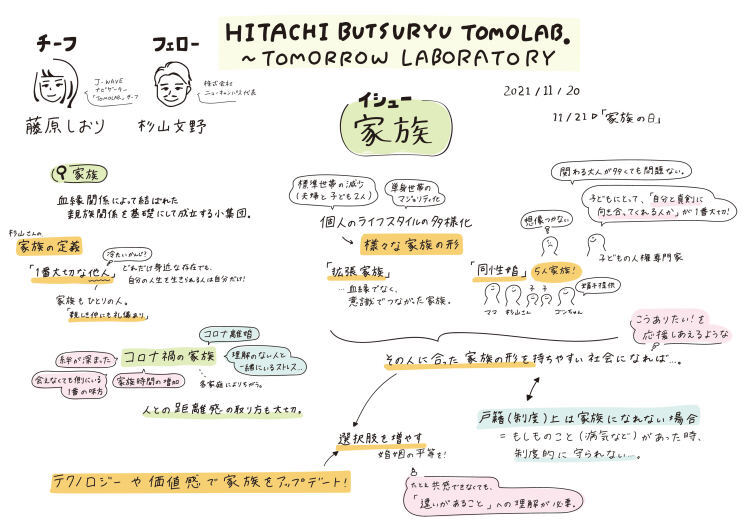 HITACHI BUTSURYU TOMOLAB.
~TOMORROW LABORATORY
チーフ
J-WAVE
ナビゲーター
「TOMOLAB.」チーフ
藤原しおり
フェロー
株式会社
ニューキャンバス代表
杉山文野
イシュー
家族
2021/11/20
11/21▷「家族の日」
家族
血縁関係によって結ばれた
親族関係を基礎にして成立する小集団。
杉山さんの
家族の定義
冷たいかんじ?
「1番大切な他人」
どれだけ身近な存在でも、
自分の人生を生きられる人は自分だけ!
家族もひとりの人。
「親しき仲にも礼儀あり」
コロナ離婚
絆が深まった
コロナ禍の家族
理解のない人と
一緒にいるストレス…
会えなくても側にいる
1番の味方
家族時間の増加
多家庭によりちがう。
人との距離感の取り方も大切。
標準世帯の減少
(夫婦と子ども2人)
単身世帯の
マジョリティ化
個人のライフスタイルの多様化
様々な家族の形
「拡張家族」
…血縁でなく、
意識でつながった家族。
関わる大人が多くても問題ない。
子どもにとって、「自分と真剣に
向き合ってくれる人か」が1番大切!
想像つかない
子どもの人権専門家
「同性婚」
5人家族!
子 子
精子提供
ママ 杉山さん ゴンちゃん
こうありたい!を
応援しあえるような
その人に合った家族の形を持ちやすい社会になれば…。
選択肢を増やす
婚姻の平等を!
戸籍(制度)上は家族になれない場合
=もしものこと(病気など)があった時、
制度的に守られない…。
テクノロジーや価値感で家族をアップデート!
たとえ共感できなくても、
「違いがあること」への理解が必要。